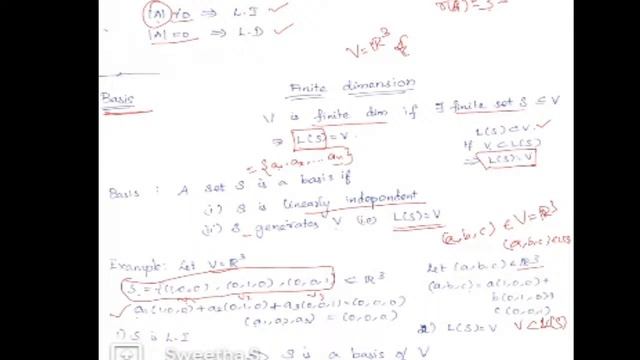 |A| ≠0 ⇒ L.I ✓
|A| =0 ⇒ L.D ✓
V=ℝ³
Basis
Finite dimension
V is finite dim if ∃ finite set S ⊆ V
⇒ L(S) = V.
L(S) ⊂ V ✓
V ⊂ L(S)
⇒ L(S)=V
Basis : A set S is a basis if
(i) S is linearly independent
(ii) S generates V (ie) L(S)=V
(a,b,c) ∈ V=ℝ³
Example: Let V=ℝ³
S = {(1,0,0), (0,1,0), (0,0,1)} ⊂ ℝ³
✓ a₁(1,0,0)+a₂(0,1,0)+a₃(0,0,1)=(0,0,0)
(a₁,a₂,a₃) = (0,0,0)
1) S is L.I
Let (a,b,c) ∈ ℝ³
(a,b,c) = a(1,0,0)+
b(0,1,0)+
c(0,0,1)
L(S)=V V⊂L(S)
⇒ S is a basis of V
Swetha S